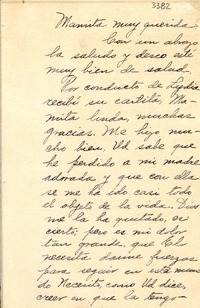 3382
Mamita muy querida
Con un abrazo
la saludo y deseo esté
muy bien de salud.
Por conducto de Lydia
recibí su cartita, Ma-
mita linda, muchas
gracias. Me hizo mu-
cho bien. Ud sabe que
he perdido a mi madre
adorada y que con ella
se me ha ido casi todo
el objeto de la vida. Dios
me la ha quitado, es
cierto, pero es mi dolor
tan grande, que El
necesita darme fuerzas
para seguir en este mun-
do. Necesito, como Ud dice,
creer en que la tengo